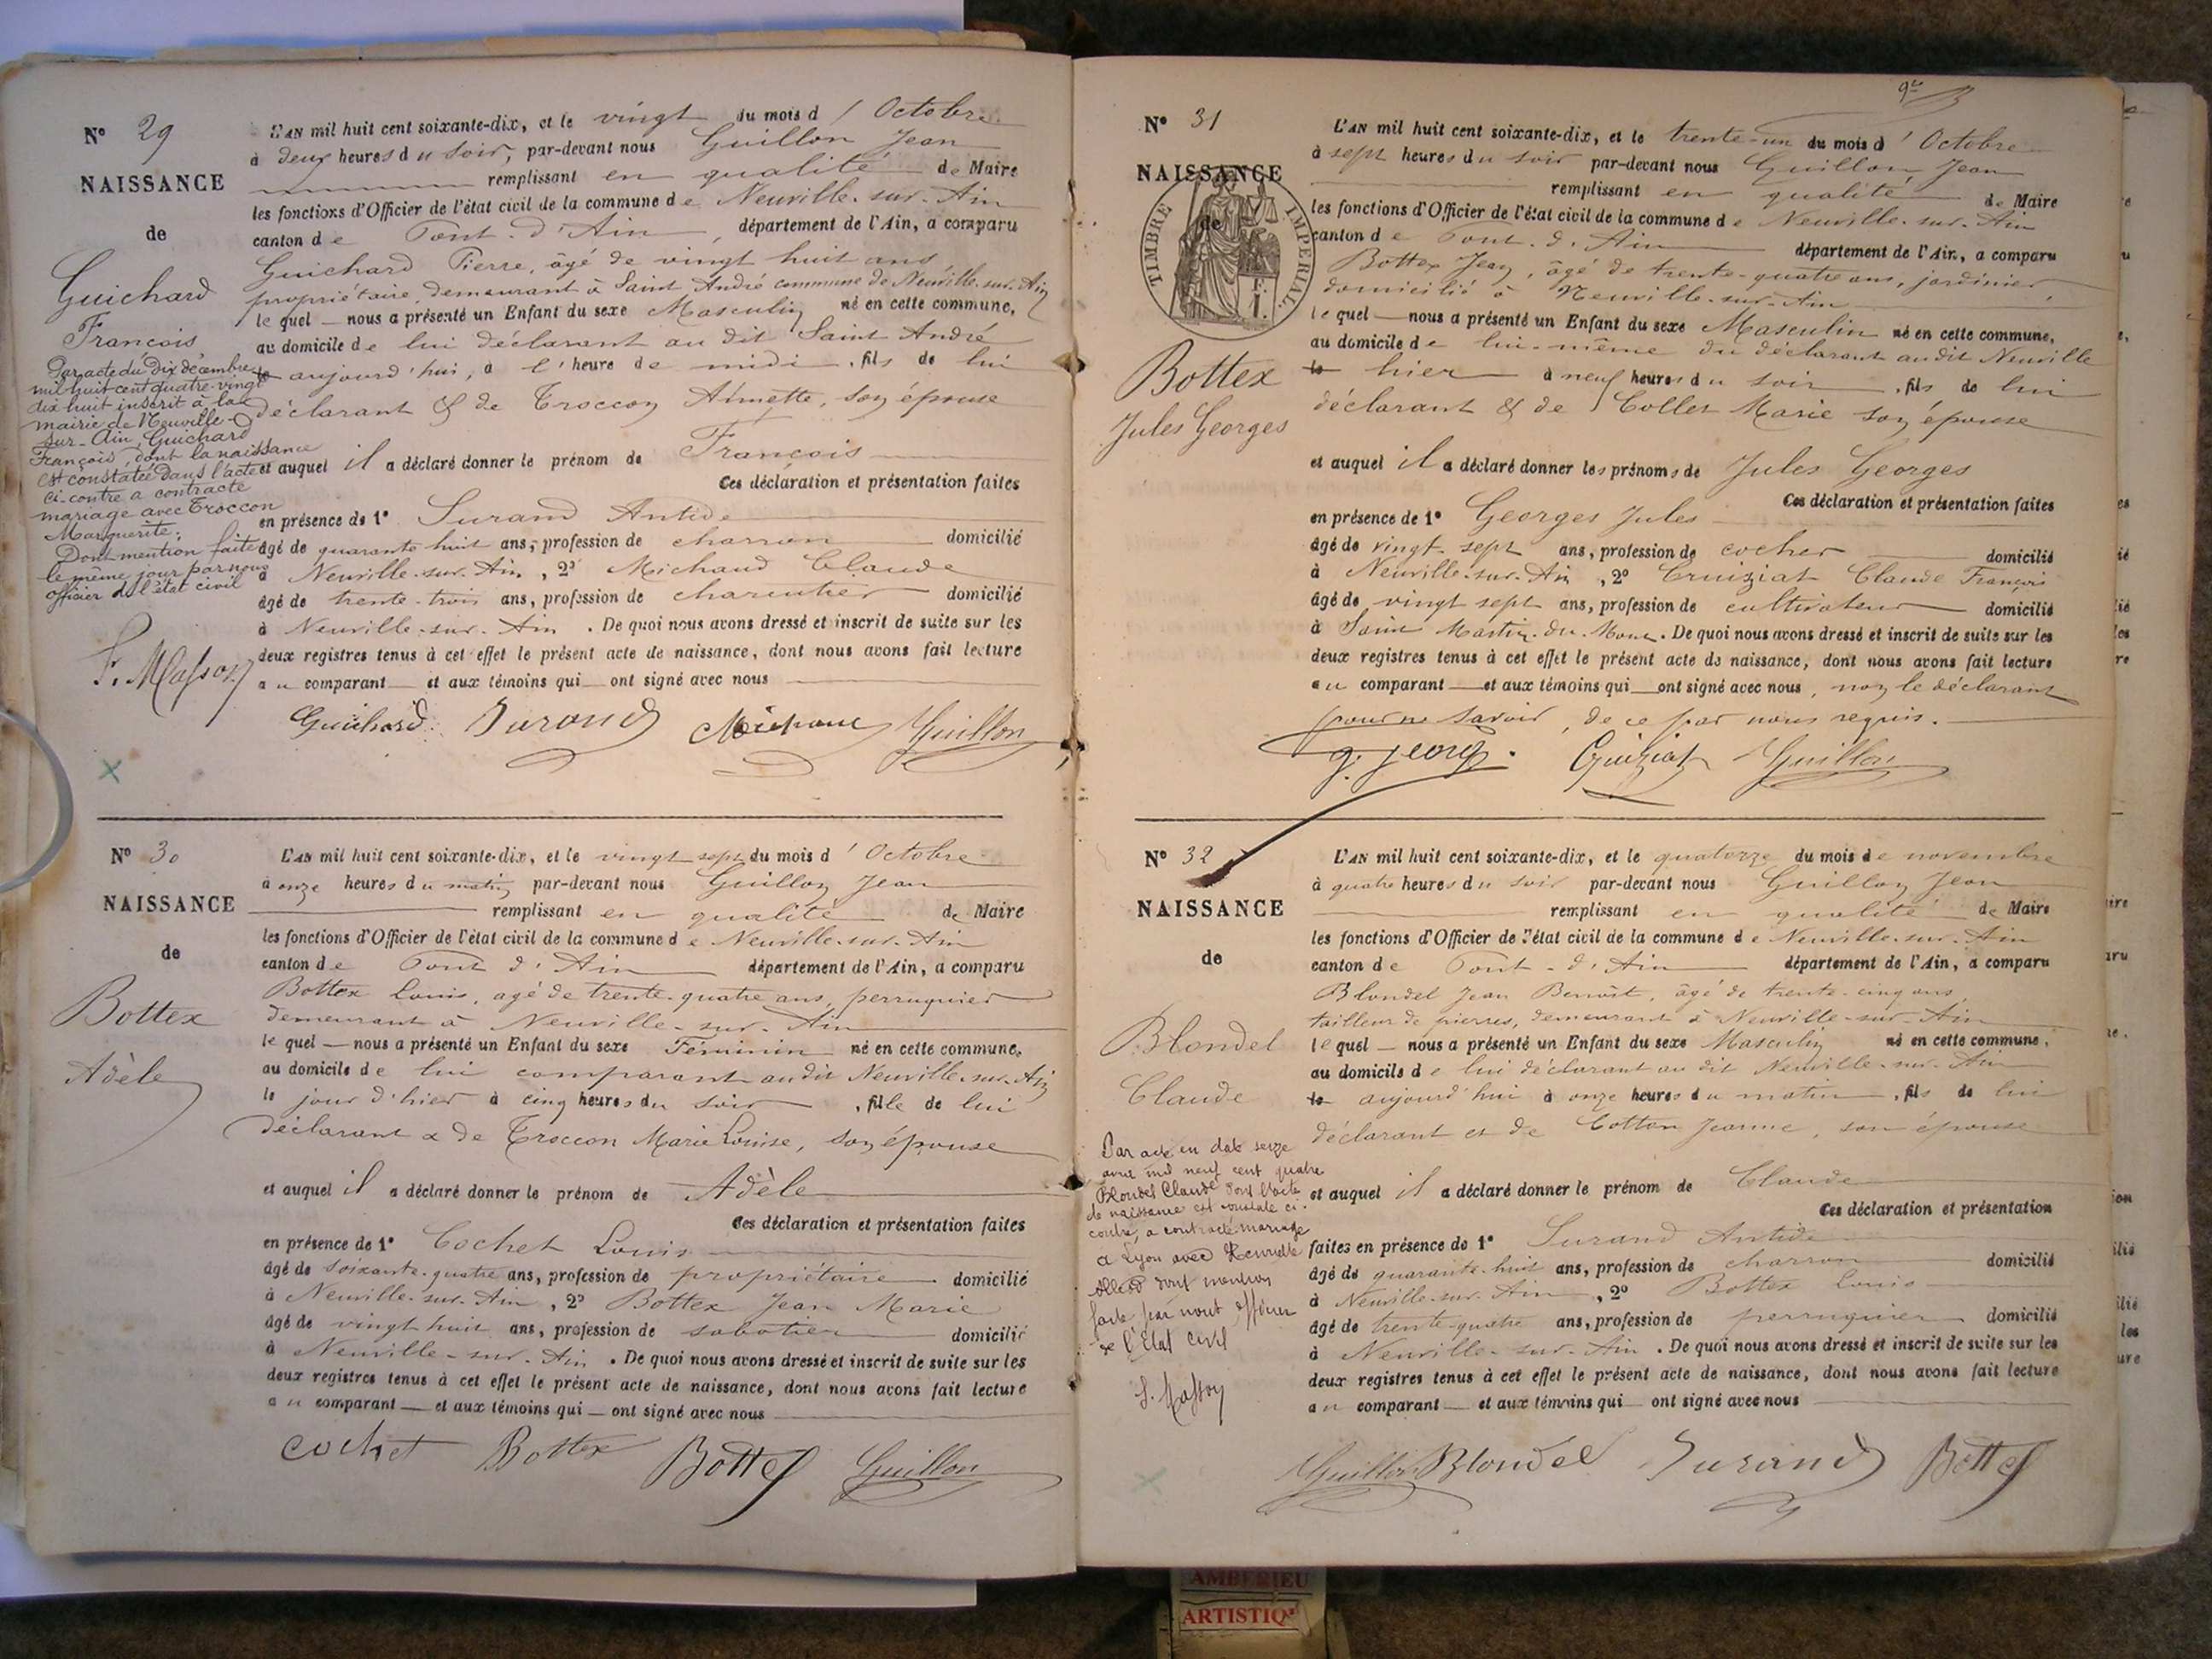 N° 29
NAISSANCE
de
Guichard
François
Par acte du Dix décembre
mil huit cent quatre-vingt
dix huit inscrit à la
mairie de Neuville-
sur-Ain, Guichard
François, dont la naissance
est constatée dans l'acte
ci-contre a contracté
mariage avec Troccon
Marguerite.
Dont mention faite
le même jour par nous
officier de l'état civil
F. Masson
L'AN mil huit cent soixante-dix, et le vingt du mois d'Octobre
à deux heures du soir, par-devant nous Guillon Jean
remplissant en qualité de Maire
les fonctions d'Officier de l'état civil de la commune de Neuville-sur-Ain
canton de Pont-d'Ain, département de l'Ain, a comparu
Guichard Pierre, âgé de vingt huit ans
propriétaire, demeurant à Saint André commune de Neuville-sur-Ain
lequel nous a présenté un Enfant du sexe Masculin né en cette commune,
au domicile de lui déclarant au dit Saint André
le aujourd'hui, à l'heure de midi, fils de lui
déclarant & de Troccon Aimette, son épouse
et auquel il a déclaré donner le prénom de François
Ces déclaration et présentation faites
en présence de 1° Durand Antide
âgé de quarante huit ans, profession de charron domicilié
à Neuville-sur-Ain, 2° Michaud Claude
âgé de trente-trois ans, profession de charcutier domicilié
à Neuville-sur-Ain. De quoi nous avons dressé et inscrit de suite sur les
deux registres tenus à cet effet le présent acte de naissance, dont nous avons fait lecture
au comparant et aux témoins qui ont signé avec nous
Guichard Durand Michaud Guillon
N° 30
NAISSANCE
de
Bottex
Adèle
L'AN mil huit cent soixante-dix, et le vingt sept du mois d'Octobre
à onze heures du matin par-devant nous Guillon Jean
remplissant en qualité de Maire
les fonctions d'Officier de l'état civil de la commune de Neuville-sur-Ain
canton de Pont d'Ain département de l'Ain, a comparu
Bottex Louis, âgé de trente-quatre ans, perruquier
demeurant à Neuville-sur-Ain
lequel nous a présenté un Enfant du sexe Féminin né en cette commune,
au domicile de lui comparant audit Neuville-sur-Ain
le jour d'hier à cinq heures du soir, fille de lui
déclarant & de Troccon Marie Louise, son épouse
et auquel il a déclaré donner le prénom de Adèle
Ces déclaration et présentation faites
en présence de 1° Cochet Louis
âgé de soixante-quatre ans, profession de propriétaire domicilié
à Neuville-sur-Ain, 2° Bottex Jean Marie
âgé de vingt huit ans, profession de sabotier domicilié
à Neuville-sur-Ain. De quoi nous avons dressé et inscrit de suite sur les
deux registres tenus à cet effet le présent acte de naissance, dont nous avons fait lecture
au comparant et aux témoins qui ont signé avec nous
Cochet Bottex Bottex Guillon
N° 31
NAISSANCE
de
TIMBRE IMPERIAL
Bottex
Jules Georges
L'AN mil huit cent soixante-dix, et le trente-un du mois d'Octobre
à sept heures du soir par-devant nous Guillon Jean
remplissant en qualité de Maire
les fonctions d'Officier de l'état civil de la commune de Neuville-sur-Ain
canton de Pont-d'Ain département de l'Ain, a comparu
Bottex Jean, âgé de trente-quatre ans, jardinier,
domicilié à Neuville-sur-Ain
lequel nous a présenté un Enfant du sexe Masculin né en cette commune,
au domicile de lui-même du déclarant audit Neuville
le hier à neuf heures du soir, fils de lui
déclarant & de Collet Marie son épouse
et auquel il a déclaré donner les prénoms de Jules Georges
Ces déclaration et présentation faites
en présence de 1° Georges Jules
âgé de vingt-sept ans, profession de cocher domicilié
à Neuville-sur-Ain, 2° Cruiziat Claude François
âgé de vingt sept ans, profession de cultivateur domicilié
à Saint Martin-du-Mont. De quoi nous avons dressé et inscrit de suite sur les
deux registres tenus à cet effet le présent acte de naissance, dont nous avons fait lecture
au comparant et aux témoins qui ont signé avec nous, non le déclarant
pour ne savoir, de ce par nous requis.
Cruiziat Guillon
N° 32
NAISSANCE
de
Blondel
Claude
Par acte en date seize
avril mil neuf cent quatre
Blondel Claude dont l'acte
de naissance est constaté ci-
contre, a contracté mariage
à Lyon avec
dont mention
faite par nous officier
de l'Etat civil
Masson
L'AN mil huit cent soixante-dix, et le quatorze du mois de novembre
à quatre heures du soir par-devant nous Guillon Jean
remplissant en qualité de Maire
les fonctions d'Officier de l'état civil de la commune de Neuville-sur-Ain
canton de Pont-d'Ain département de l'Ain, a comparu
Blondel Jean Benoît, âgé de trente-cinq ans,
tailleur de pierres, demeurant à Neuville-sur-Ain
lequel nous a présenté un Enfant du sexe Masculin né en cette commune,
au domicile de lui déclarant au dit Neuville-sur-Ain
le aujourd'hui à onze heures du matin, fils de lui
déclarant et de Cotton Jeanne, son épouse
et auquel il a déclaré donner le prénom de Claude
Ces déclaration et présentation
faites en présence de 1° Durand Antide
âgé de quarante-huit ans, profession de charron domicilié
à Neuville-sur-Ain, 2° Bottex Louis
âgé de trente-quatre ans, profession de perruquier domicilié
à Neuville-sur-Ain. De quoi nous avons dressé et inscrit de suite sur les
deux registres tenus à cet effet le présent acte de naissance, dont nous avons fait lecture
au comparant et aux témoins qui ont signé avec nous
Guillon Blondel Durand Bottex
AMBERIEU
ARTISTIQ